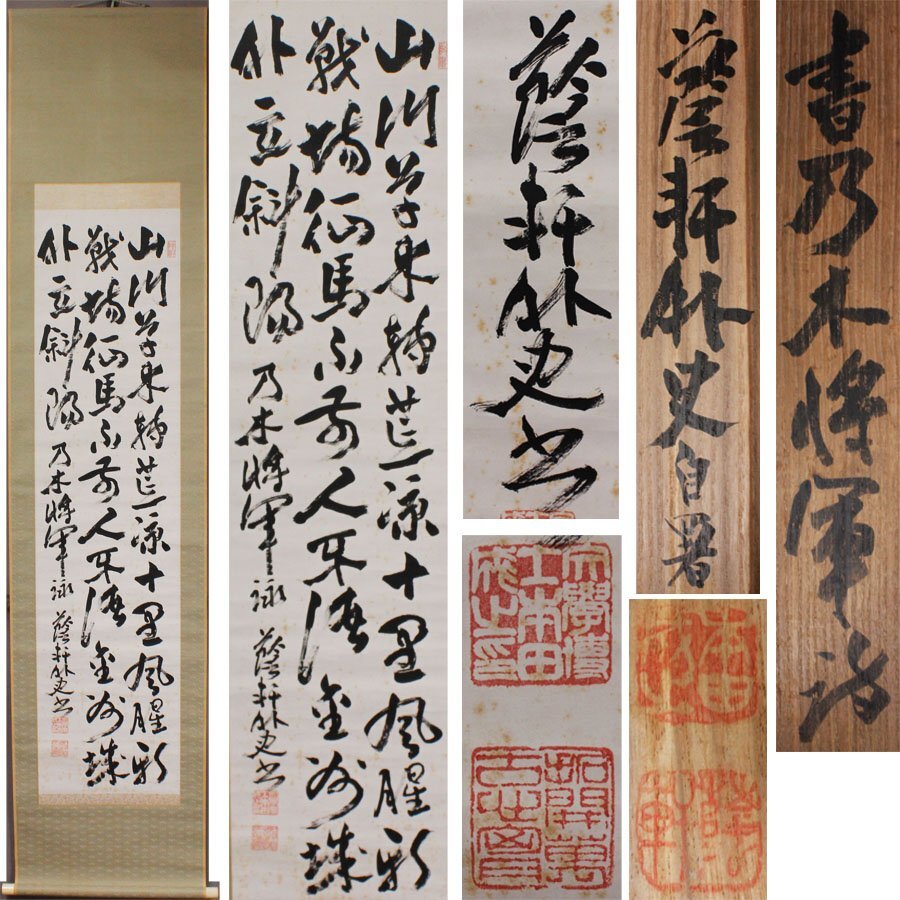 山川草木轉荒涼十里風腥新
戰場征馬不前人不語金州城
外立斜陽 乃木将軍詠 蔭軒外史書
山川草木轉荒涼十里風腥新
戰場征馬不前人不語金州城
外立斜陽 乃木将軍詠 蔭軒外史書
蔭軒外史書
蔭軒外史自署
書乃木将軍詩
文學博
士本田
成之印
拓開萬
古心胸
蔭軒